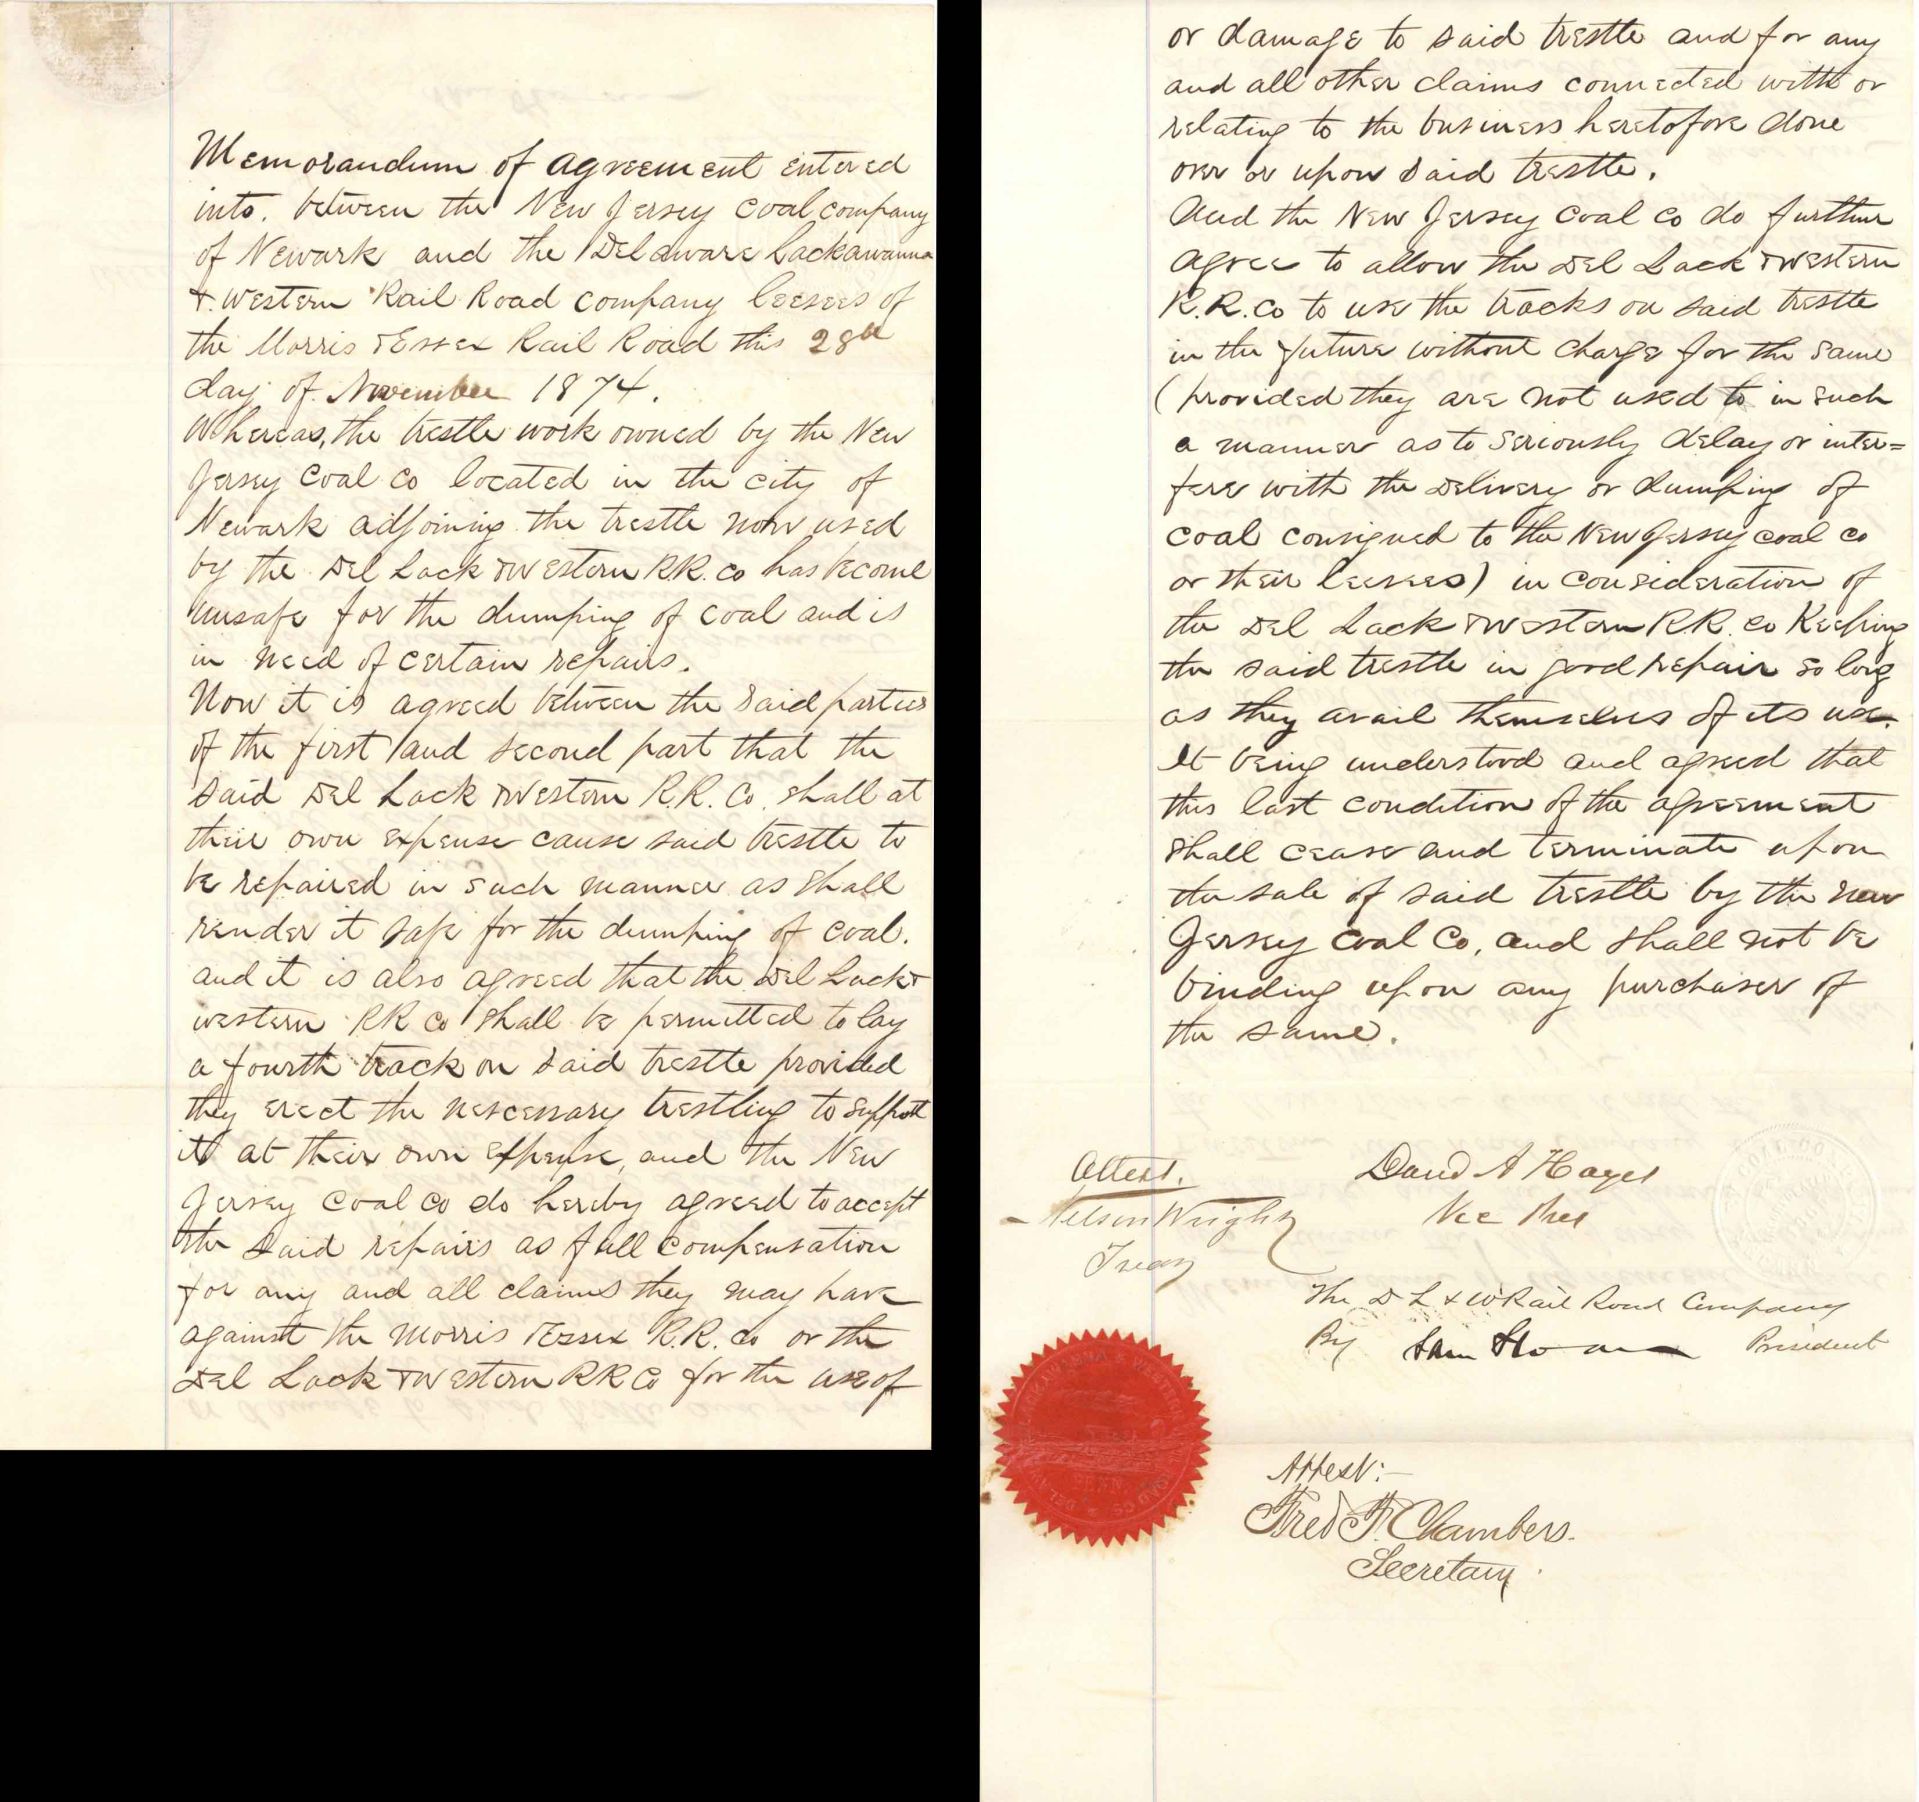 Memorandum of agreement entered
into. between the New Jersey Coal company
of Newark and the Delaware Lackawanna
& Western Rail Road company leesees of
the Morris & Essex Rail Road this 28th
day of November 1874.
Whereas, the trestle work owned by the New
Jersey Coal Co located in the city of
Newark adjoining the trestle now used
by the Del Lack & Western RR. Co has become
unsafe for the dumping of coal and is
in need of certain repairs.
Now it is agreed between the said parties
of the first and second part that the
said Del Lack & Western R.R. Co. shall at
their own expense cause said trestle to
be repaired in such manner as shall
render it safe for the dumping of coal.
and it is also agreed that the Del Lack &
western RR Co shall be permitted to lay
a fourth track on said trestle provided
they erect the nescessary trestling to support
it at their own expense, and the New
Jersey Coal Co do hereby agreed to accept
the said repairs as full compensation
for any and all claims they may have
against the Morris & Essex R.R. Co or the
Del Lack & Western RR Co for the use of
or damage to said trestle and for any
and all other claims connected with or
relating to the business heretofore done
over or upon said trestle.
And the New Jersey Coal Co do further
agree to allow the Del Lack & Western
R.R. Co to use the tracks on said trestle
in the future without charge for the same
(provided they are not used to in such
a manner as to seriously delay or inter=
fere with the delivery or dumping of
coal consigned to the New Jersey Coal Co
or their leesees) in consideration of
the Del Lack & Western RR. Co Keeping
the said trestle in good repair so long
as they avail themselves of its use.
It being understood and agreed that
this last condition of the agreement
shall cease and terminate upon
the sale of said trestle by the New
Jersey Coal Co, and shall not be
binding upon any purchaser of
the same.
Attest.
Nelson Wright
Treas
David A Hayes
Vice Pres
The D L & W Rail Road Company
By Sam Sloan President
Attest:-
Fred F. Chambers.
Secretary.